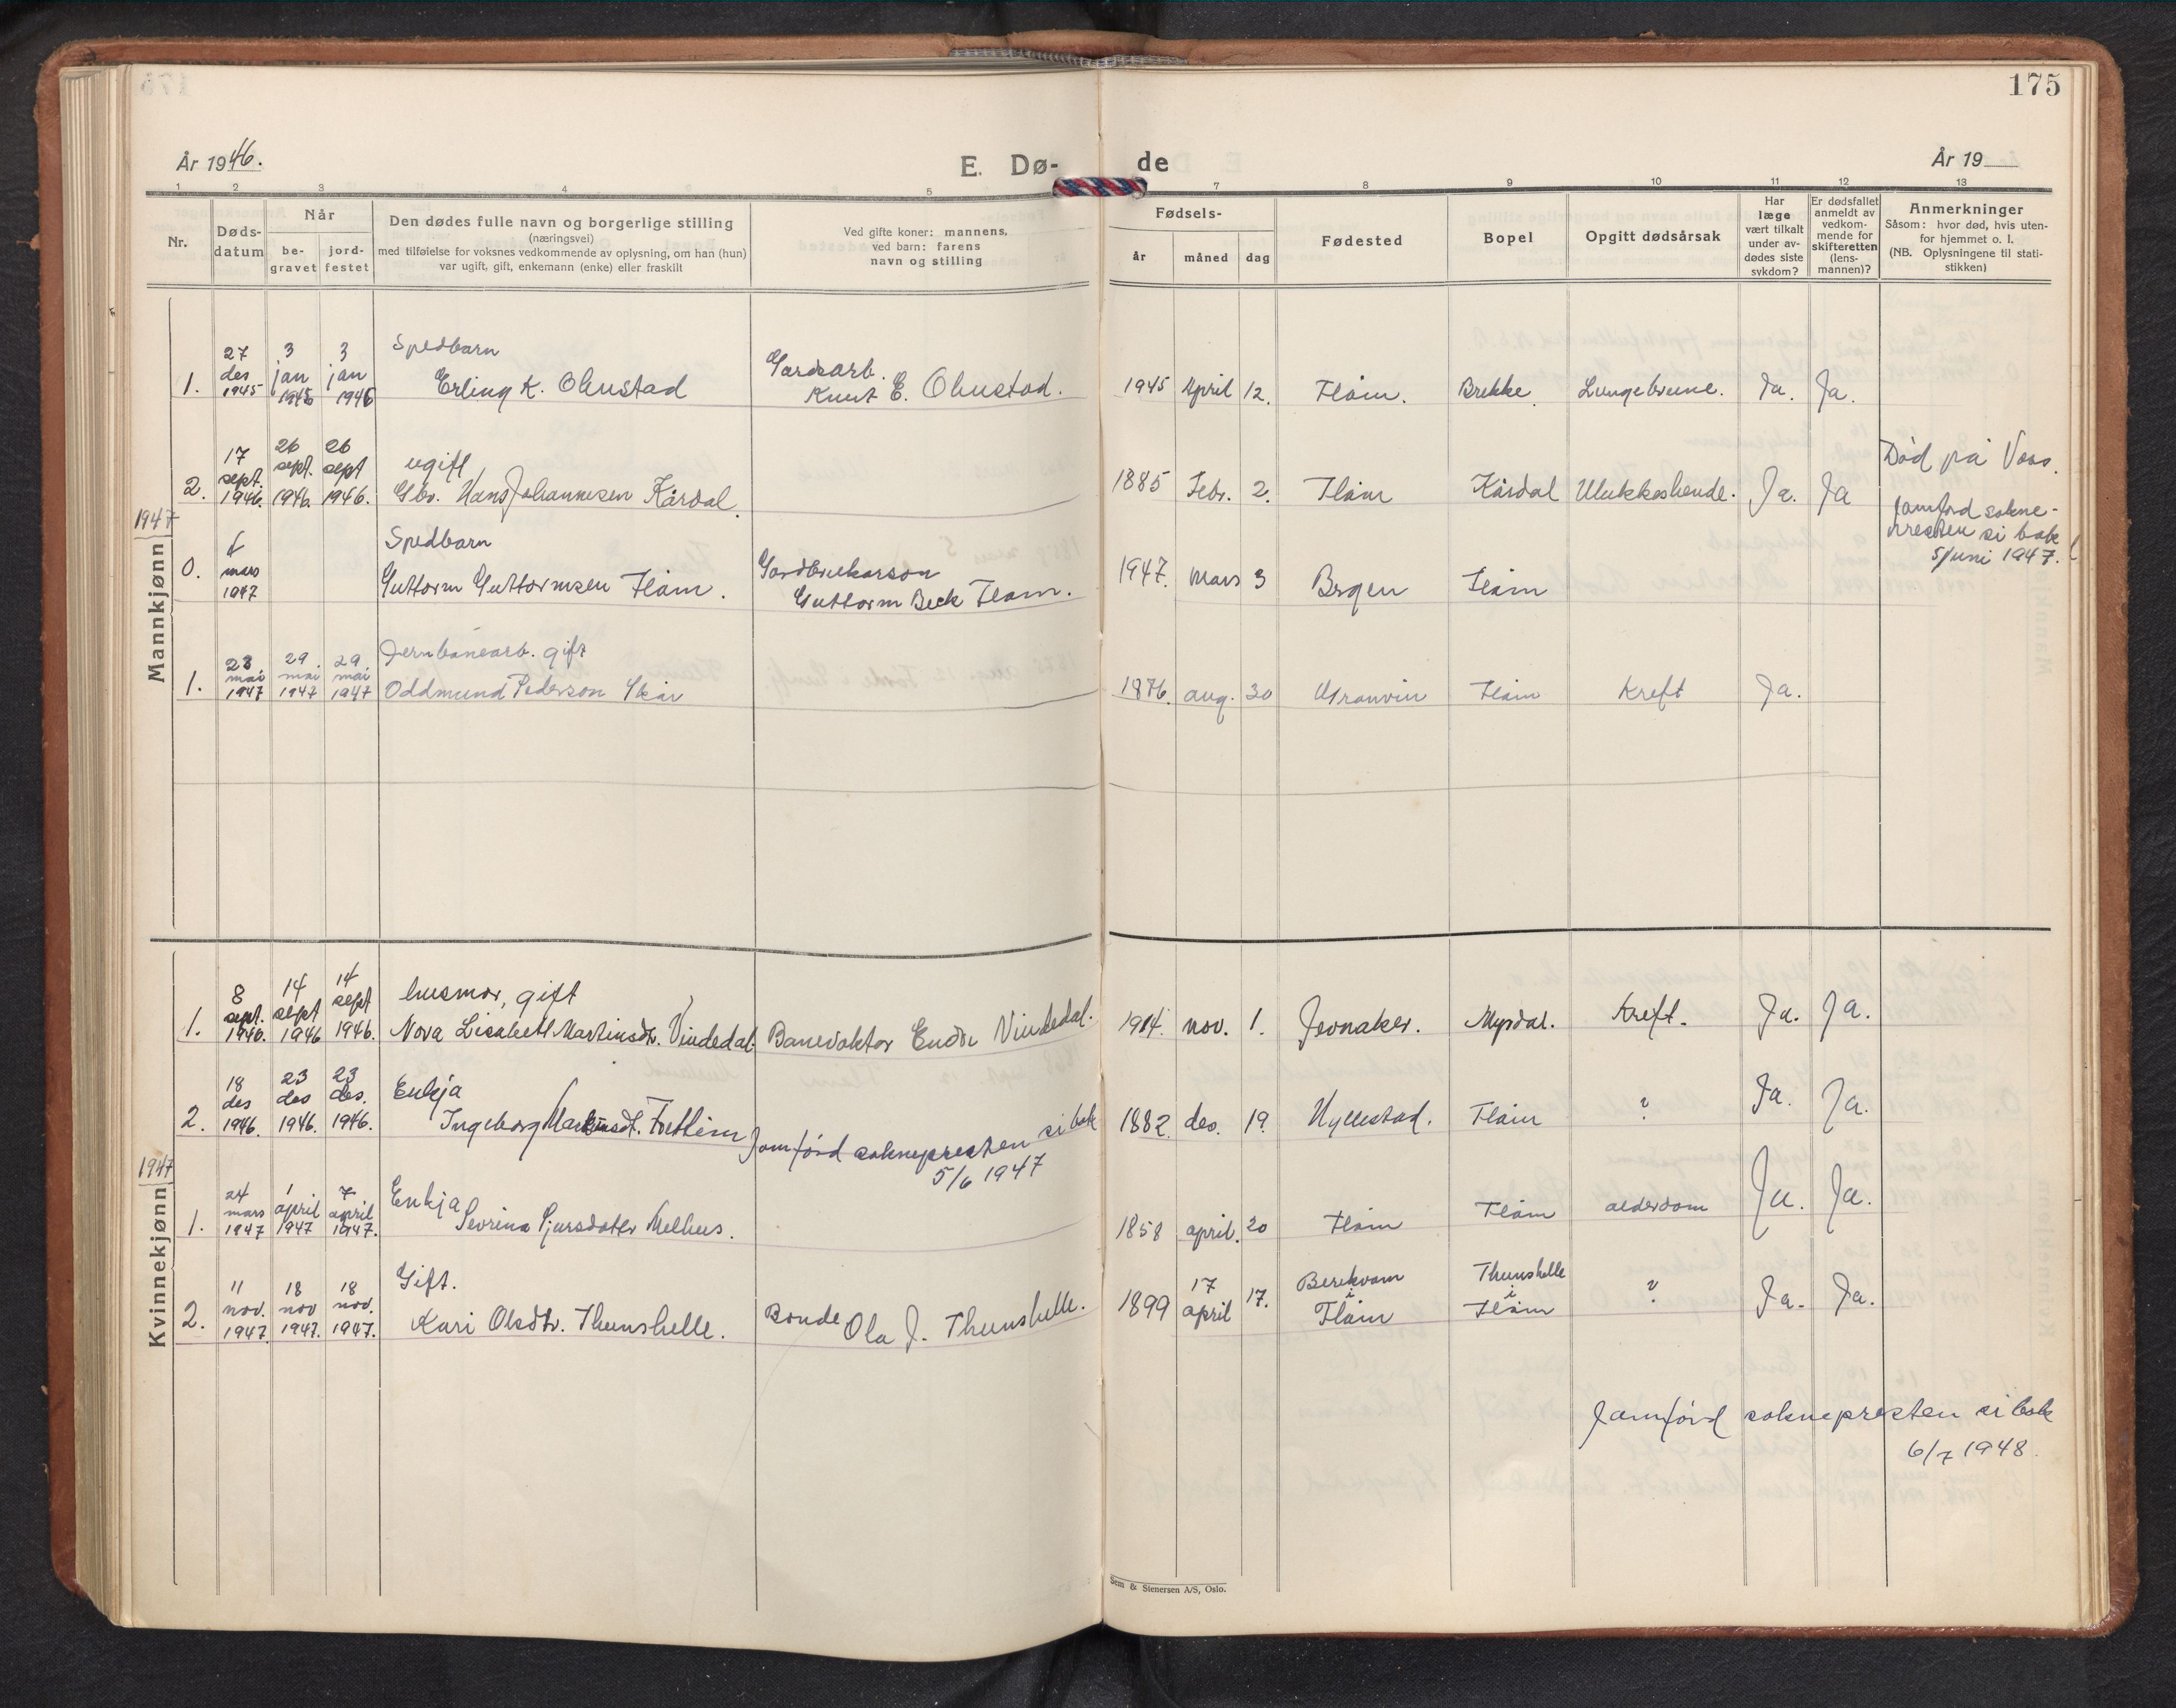 175
År 1946.
E. Dø-
de
År 19
1 2 3 4 5 7 8 9 10 11 12 13
Nr.
Døds-
datum
Når
be-
gravet
jord-
festet
Den dødes fulle navn og borgerlige stilling
(næringsvei)
med tilføielse for voksnes vedkommende av oplysning, om han (hun)
var ugift, gift, enkemann (enke) eller fraskilt
Ved gifte koner: mannens,
ved barn: farens
navn og stilling
Fødsels-
år
måned
dag
Fødested
Bopel
Opgitt dødsårsak
Har
læge
vært tilkalt
under av-
dødes siste
sykdom?
Er dødsfallet
anmeldt av
vedkom-
mende for
skifteretten
(lens-
mannen)?
Anmerkninger
Såsom: hvor død, hvis uten-
for hjemmet o. l.
(NB. Oplysningene til stati-
stikken)
Mannkjønn
1.
27
des
1945
3
jan
1946
3
jan
1946
Spedbarn
Erling K. Ohnstad
Gardsarb.
Knut E. Ohnstad.
1945 April 12. Flåm. Brekke. Lungebetene. Ja. Ja.
2.
17
sept.
1946.
26
sept.
1946.
26
sept
1946.
ugift
Gbr. Hans Johannesen Kårdal.
1885 Febr. 2. Flåm Kårdal Ulukkeshende. Ja. Ja
Død på Voss.
Jamførd sokne-
presten si bok
5/juni 1947.
1947
0.
mars
1947
Spedbarn
Guttorm Guttormsen Flåm.
Gardbrukarson
Guttorm Beck Flåm.
1947. mars 3 Bergen Flåm
1.
23.
mai
1947
29.
mai
1947
29.
mai
1947
Jernbanearb. gift
Oddmund Pederson Skår
1876. aug. 30 Granvin Flåm Kreft Ja.
Kvinnekjønn
1.
8
sept.
1946.
14
sept
1946
14
sept
1946.
husmor, gift
Nora Lisabeth Martinsdtr. Vindedal.
Banevaktar Endre Vindedal.
1914. nov. 1. Jevnaker. Myrdal. Kreft. Ja. Ja.
2.
18
des
1946.
23
des
1946.
23
des.
1946.
Enkja
Ingeborg Martinsdt. Fretheim
Jamførd soknepresten si bok
5/6 1947
1882. des. 19. Hyllestad. Flåm ? Ja. Ja.
1947
1.
24
mars
1947
1
april
1947
7
april
1947.
Enkja
Sevrina Sjursdotter Melhus.
1858 april. 20 Flåm Flåm alderdom Ja. Ja.
2.
11
nov.
1947.
18
nov
1947.
18
nov.
1947.
Gift.
Kari Olsdtr. Thunshelle.
Bonde Ola J. Thunshelle.
1899
17
april
17.
Berekvam
i
Flåm
Thunshelle
i
Flåm
?
Ja. Ja.
Jamførd soknepresten si bok
6/7 1948.
Sem & Stenersen A/S, Oslo.